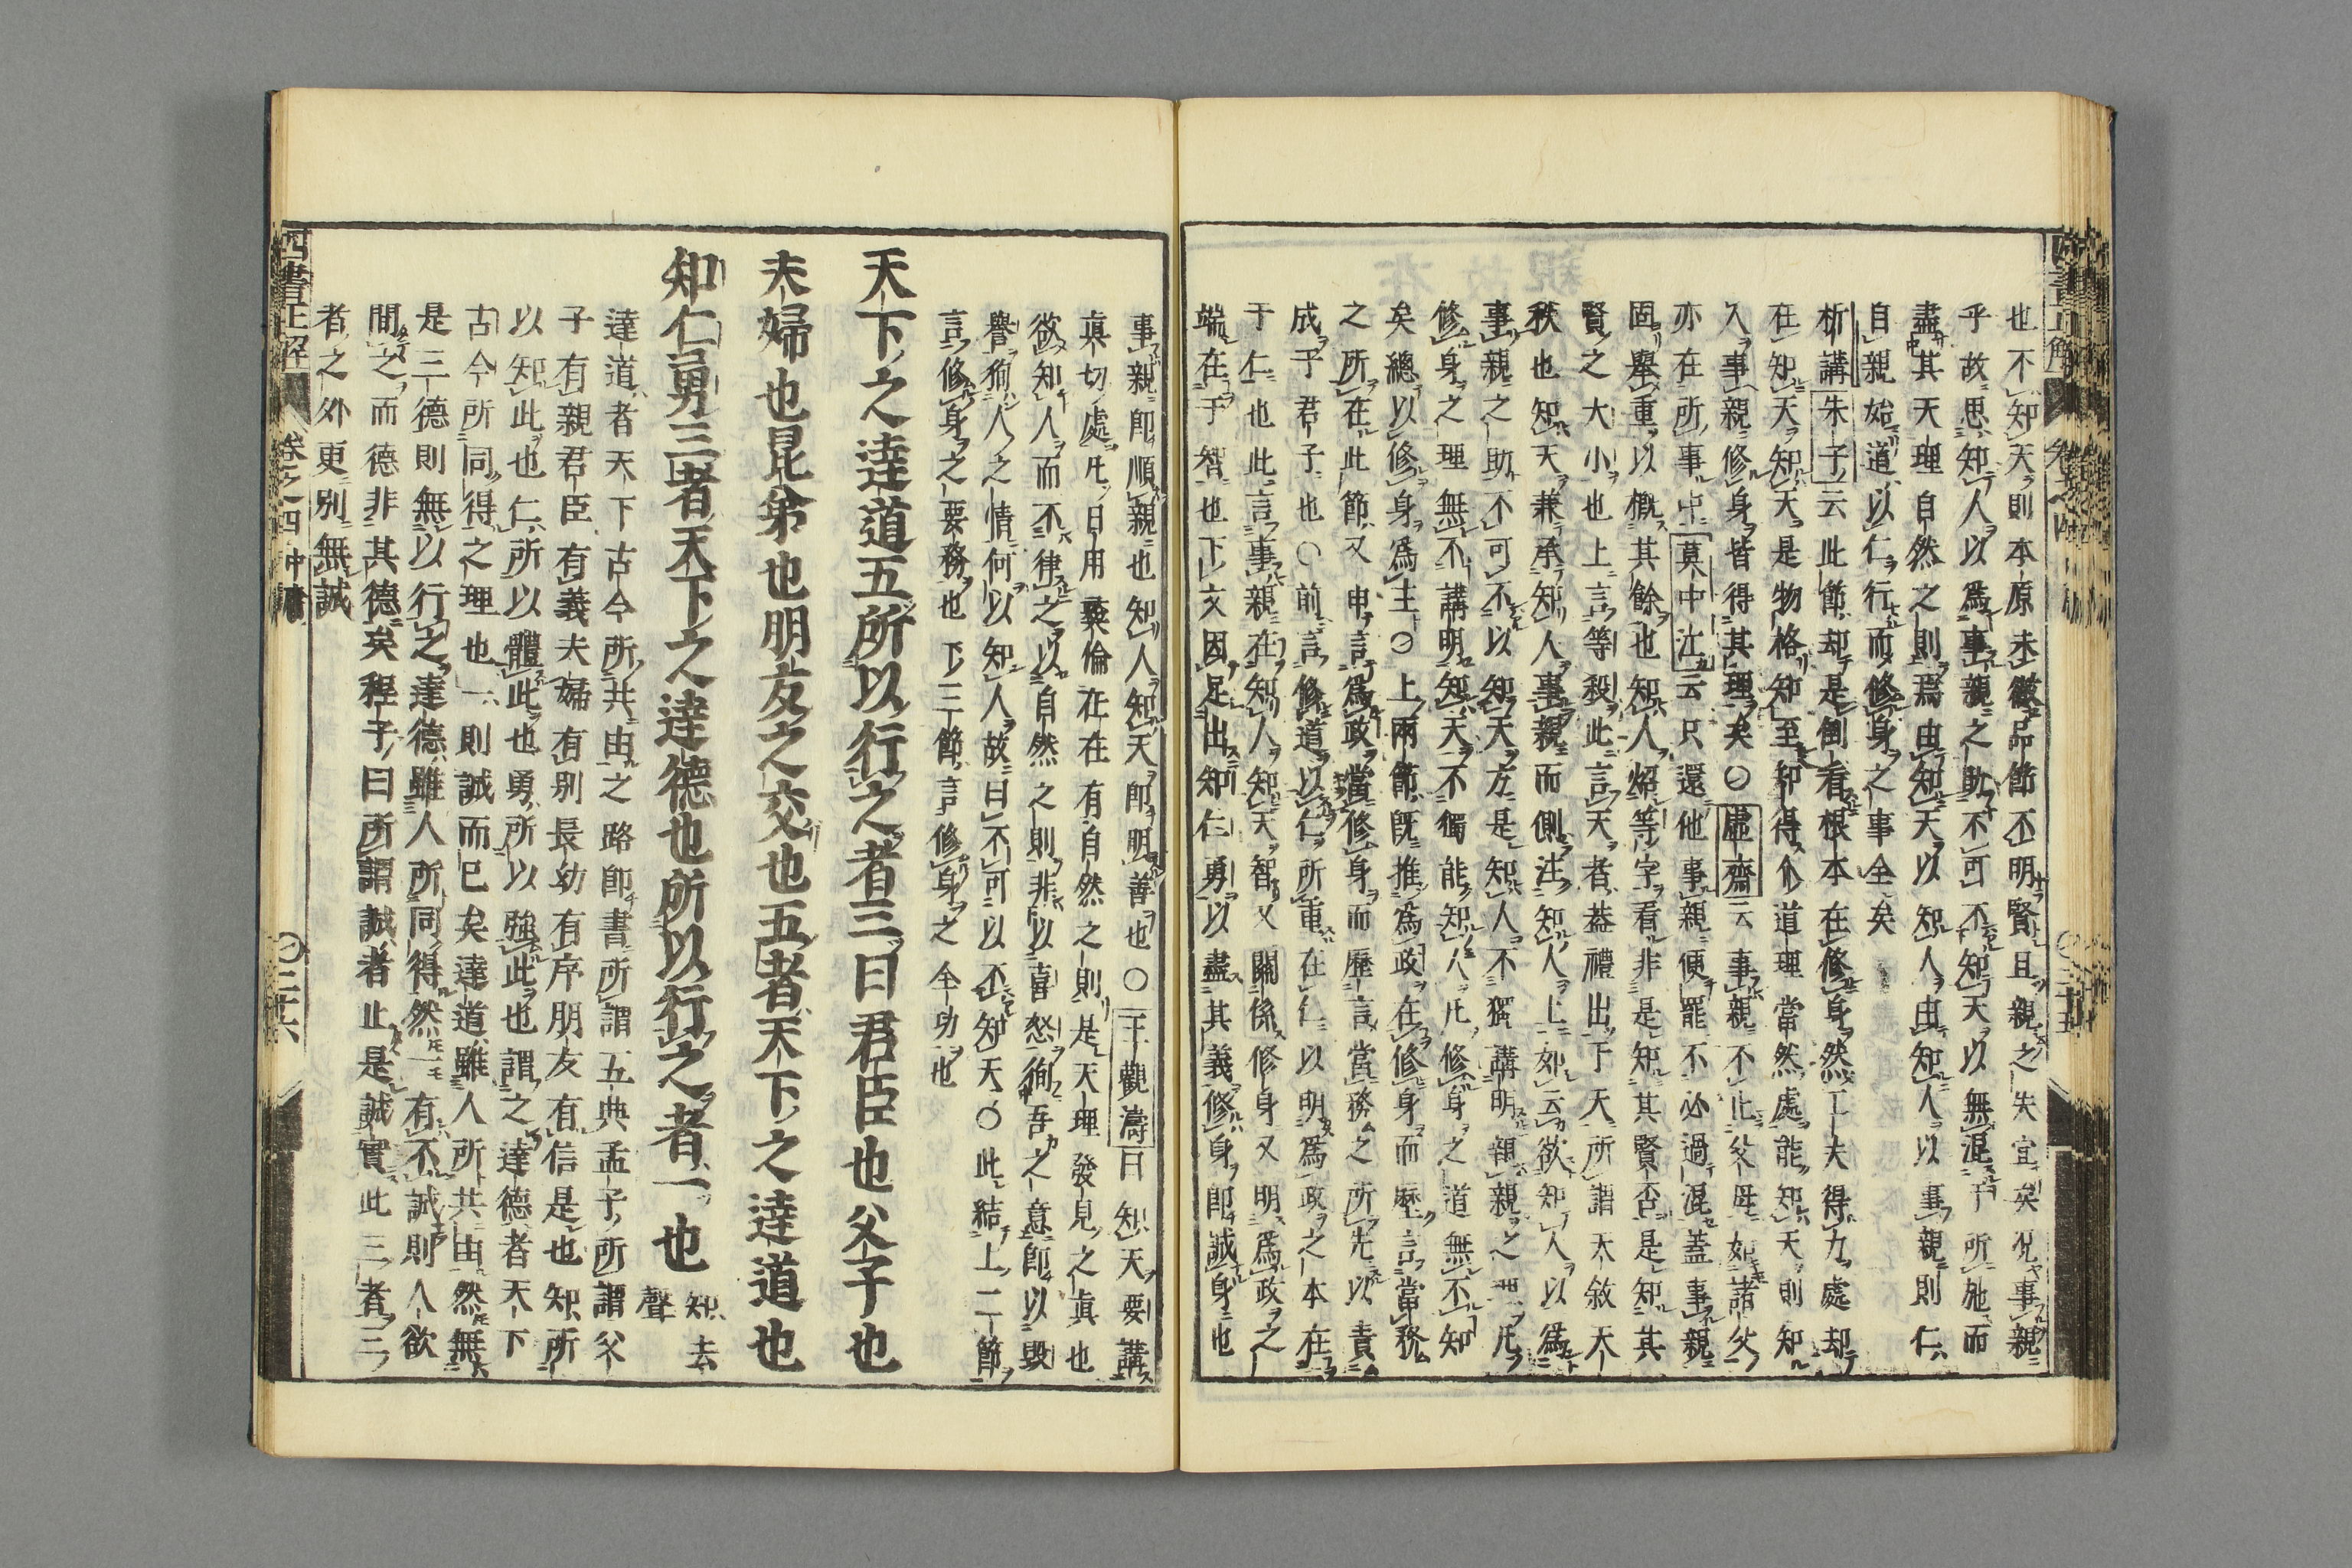 也不知天則本原未徹品節不明賢且親之失宜矣況事親
乎故思知人以爲事親之助不可不知天以無混于所施而
盡其天理自然之則焉由知天以知人由知人以事親則仁
自親始道以仁行而修身之事全矣
析講朱子云此節却是倒看根本在修身然工夫得力處却
在知天知天是物格知至知得个道理當然處能知天則知
人事親修身皆得其理矣○虛齋云事親不止父母如諸父
亦在所事中莫中江云只還他事親便罷不必過混蓋事親
固舉重以概其餘也知人照等字看非是知其賢否是知其
賢之大小也上言等殺此言天者葢禮出于天所謂天敘天
秩也知天兼承知人事親而側注知人上如云欲知人以爲
事親之助不可不以知天方是知人不獨講明親親之理凡
修身之理無不講明知天不獨能知人凡修身之道無不知
矣總以修身爲主○上兩節既推爲政在修身而歷言當務
之所在此節又申言爲政當修身而歷言當務之所先以責
成乎君子也○前言修道以仁所重在仁以明爲政之本在
于仁也此言事親在知人知天智又關係修身又明爲政之
端在于智也下文因足出知仁勇以盡其義修身即誠身也
事親即順親也知人知天即明善也○王觀濤曰知天要講
眞切處凡日用彜倫在在有自然之則是天理發見之眞也
欲知人而不律之以自然之則非以喜怒徇吾之意即以毀
譽徇人之情何以知人故曰不可以不知天○此結上二節
言修身之要務也下三節言修身之全功也
天下之達道五所以行之者三曰君臣也父子也
夫婦也昆弟也朋友之交也五者天下之達道也
知仁勇三者天下之達德也所以行之者一也知去聲
達道者天下古今所共由之路即書所謂五典孟子所謂父
子有親君臣有義夫婦有別長幼有序朋友有信是也知所
以知此也仁所以體此也勇所以強此也謂之達德者天下
古今所同得之理也一則誠而已矣達道雖人所共由然無
是三德則無以行之達德雖人所同得然一有不誠則人欲
間之而德非其德矣程子曰所謂誠者止是誠實此三者三
者之外更別無誠
四書正解
卷之四中庸
○二十六